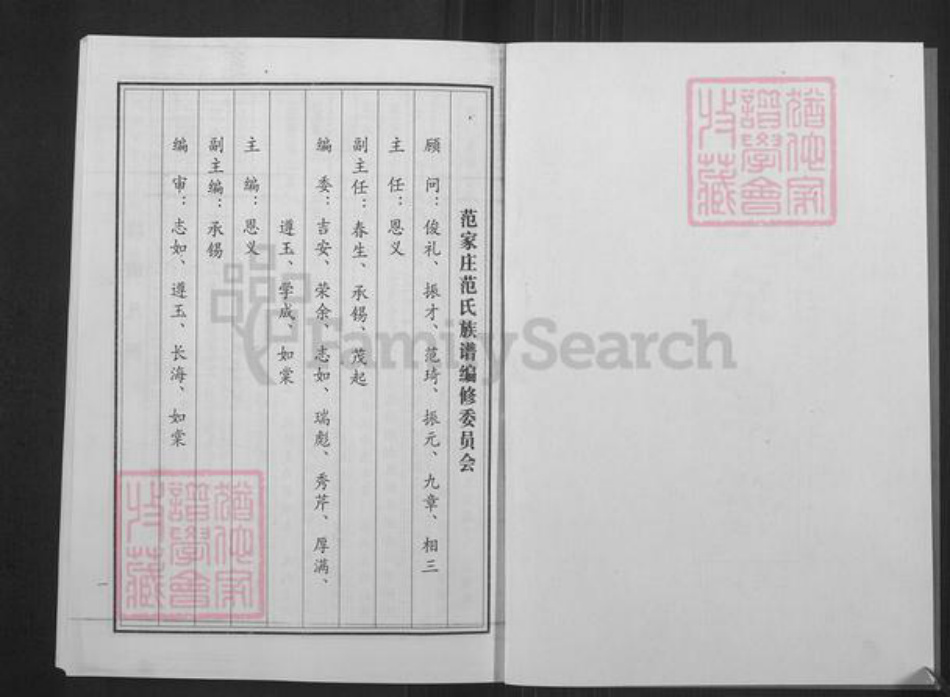 范家庄范氏族谱编修委员会
顾问：俊礼、振才、范琦、振元、九章、相三
主任：恩义
副主任：春生、承锡、茂起
编委：吉安、荣余、志如、瑞彪、秀芹、厚满、
遵玉、学成、如棠
主编：恩义
副主编：承锡
编审：志如、遵玉、长海、如棠
一
FamilySearch